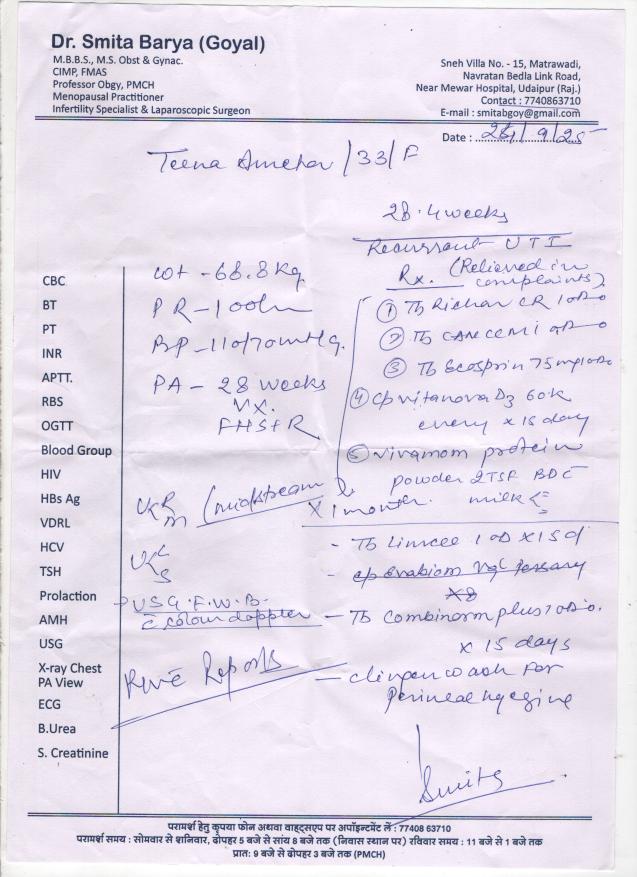 Dr. Smita Barya (Goyal)
M.B.B.S., M.S. Obst & Gynac.
CIMP, FMAS
Professor Obgy, PMCH
Menopausal Practitioner
Infertility Specialist & Laparoscopic Surgeon
Sneh Villa No. - 15, Matrawadi,
Navratan Bedla Link Road,
Near Mewar Hospital, Udaipur (Raj.)
Contact : 7740863710
E-mail : smitabgoy@gmail.com
Date : 9/25
Teena /33/F
28.4 weeks
UTI
Rx. (Relieved in
complaints)
CBC
BT
PT
INR
APTT.
RBS
OGTT
Blood Group
HIV
HBs Ag
VDRL
HCV
TSH
Prolaction
AMH
USG
X-ray Chest
PA View
ECG
B.Urea
S. Creatinine
wt - 68.8 kg
PR - 100/m
BP - 110/70 mmHg.
PA - 28 weeks
Vx.
FHS+R
① Tb CR 1 OD
② Tb 1 OD
③ Tb Ecosprin 75mg 1 OD
④ cp vitanova D3 60K
every x 15 day
⑤ vivamom protein
powder 2TSF BD c̄
milk
x 1 month.
R/M (midstream)
C/S
USG. F.W.B.
c̄ colour doppler
- Tb Limcee 1 OD x 15 d
- Vgl Pessary
x8
- Tb combinorm plus 1 OD
x 15 days
- wash for
perineal hygine
R/w c̄ Reports
Smita
परामर्श हेतु कृपया फोन अथवा वाह्ट्सएप पर अपॉइन्टमेंट लें : 77408 63710
परामर्श समय : सोमवार से शनिवार, दोपहर 5 बजे से सांय 8 बजे तक (निवास स्थान पर) रविवार समय : 11 बजे से 1 बजे तक
प्रातः 9 बजे से दोपहर 3 बजे तक (PMCH)